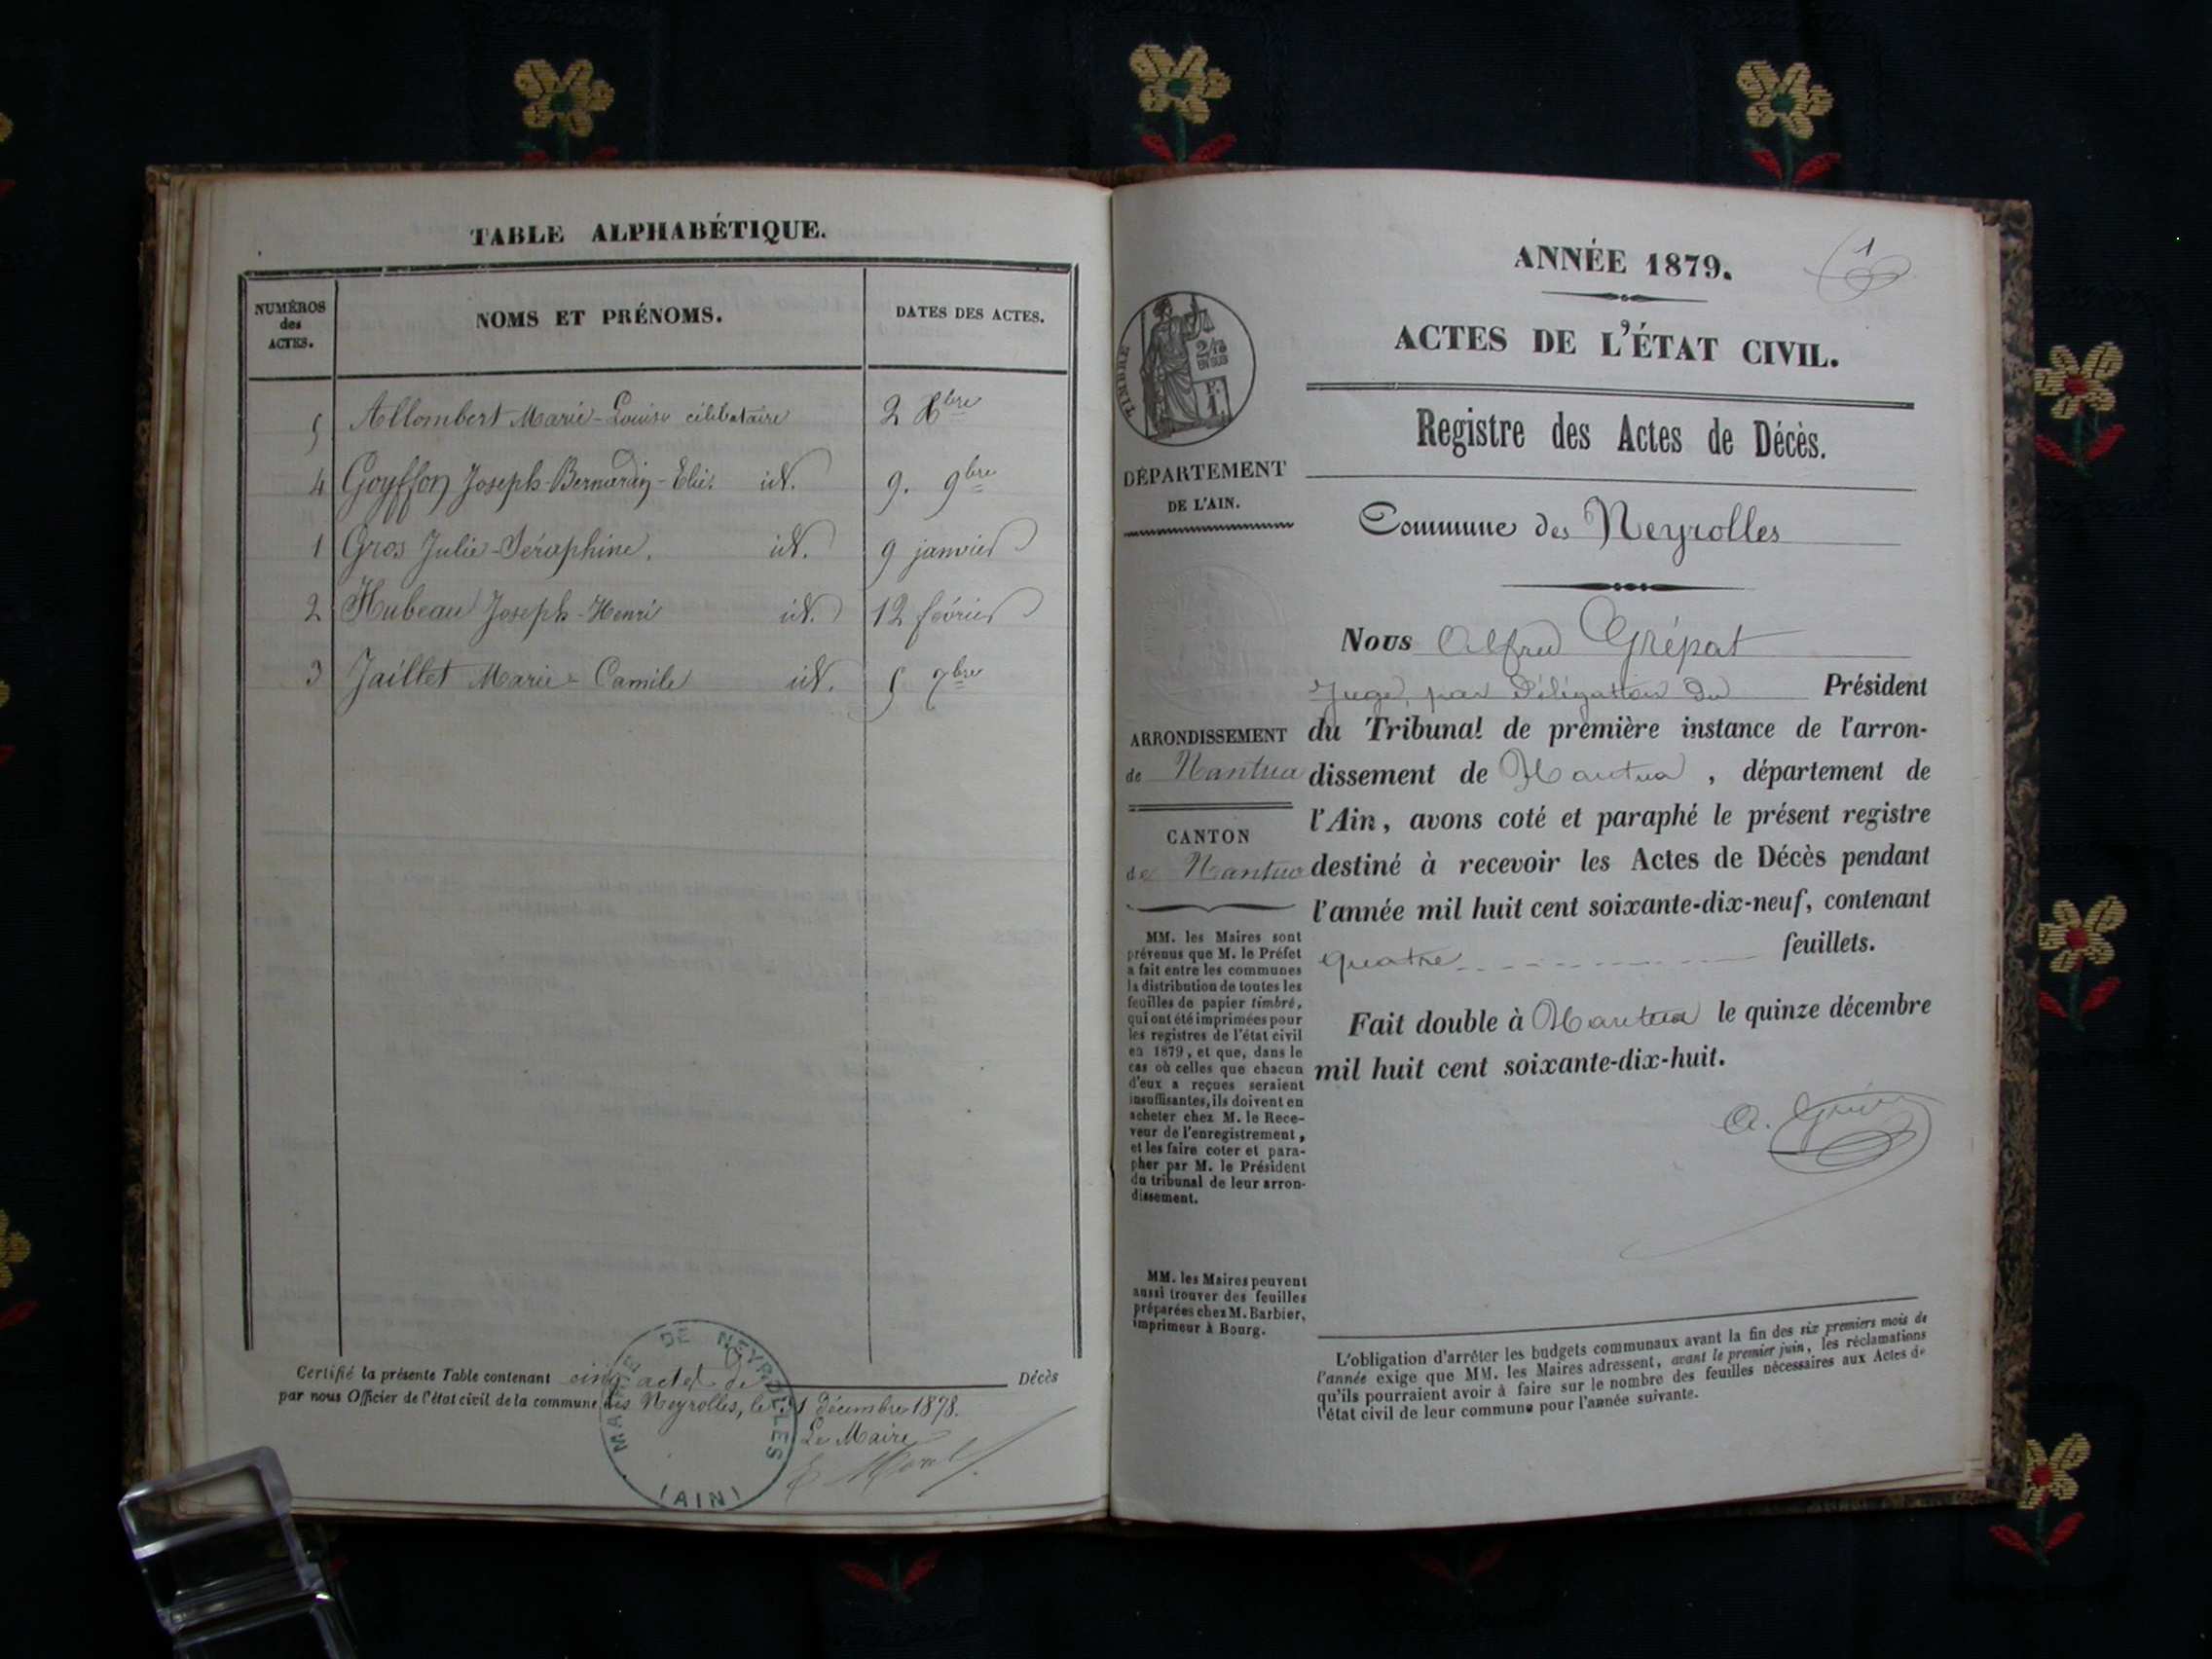 TABLE ALPHABÉTIQUE.
NUMÉROS
des
ACTES.
NOMS ET PRÉNOMS.
DATES DES ACTES.
5 Allombert Marie-Louise célibataire 2 Xbre
4 Goyffon Joseph-Bernardin-Elie. id. 9. 9bre
1 Gros Julie-Séraphine. id. 9 janvier
2 Hubeau Joseph-Henri id. 12 février
3 Jaillet Marie-Camile id. 5 7bre
Certifié la présente Table contenant cinq actes de Décès
par nous Officier de l'état civil de la commune des Neyrolles, le 31 Décembre 1878.
Le Maire
MAIRIE DE NEYROLLES
(AIN)
1
ANNÉE 1879.
ACTES DE L'ÉTAT CIVIL.
Registre des Actes de Décès.
Commune des Neyrolles
TIMBRE
2/10
EN SUS
F.
1.
DÉPARTEMENT
DE L'AIN.
ARRONDISSEMENT
de Nantua
CANTON
de Nantua
MM. les Maires sont
prévenus que M. le Préfet
a fait entre les communes
la distribution de toutes les
feuilles de papier timbré,
qui ont été imprimées pour
les registres de l'état civil
en 1879, et que, dans le
cas où celles que chacun
d'eux a reçues seraient
insuffisantes, ils doivent en
acheter chez M. le Rece-
veur de l'enregistrement,
et les faire coter et para-
pher par M. le Président
du tribunal de leur arron-
dissement.
MM. les Maires peuvent
aussi trouver des feuilles
préparées chez M. Barbier,
imprimeur à Bourg.
Nous Alfred Grépat
Juge, par délégation du Président
du Tribunal de première instance de l'arron-
dissement de Nantua, département de
l'Ain, avons coté et paraphé le présent registre
destiné à recevoir les Actes de Décès pendant
l'année mil huit cent soixante-dix-neuf, contenant
quatre feuillets.
Fait double à Nantua le quinze décembre
mil huit cent soixante-dix-huit.
L'obligation d'arrêter les budgets communaux avant la fin des six premiers mois de
l'année exige que MM. les Maires adressent, avant le premier juin, les réclamations
qu'ils pourraient avoir à faire sur le nombre des feuilles nécessaires aux Actes de
l'état civil de leur commune pour l'année suivante.